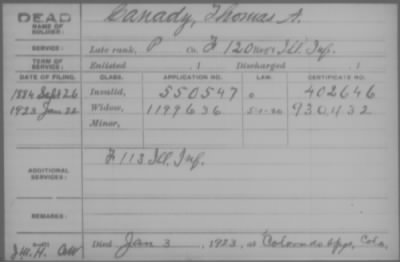 DEAD
NAME OF SOLDIER: Canady, Thomas A.
SERVICE: Late rank, P Co. F 120 Regt Ill. Inf.
TERM OF SERVICE: Enlisted , 1 Discharged , 1
DATE OF FILING. CLASS. APPLICATION NO. LAW. CERTIFICATE NO.
1884 Sept 26 Invalid, 550547 402646
1923 Jan 22 Widow, 1199636 5-1-20 930432
Minor,
ADDITIONAL SERVICES: F 113 Ill. Inf.
REMARKS:
Died Jan 3, 1923, at Colorado Spgs, Colo.